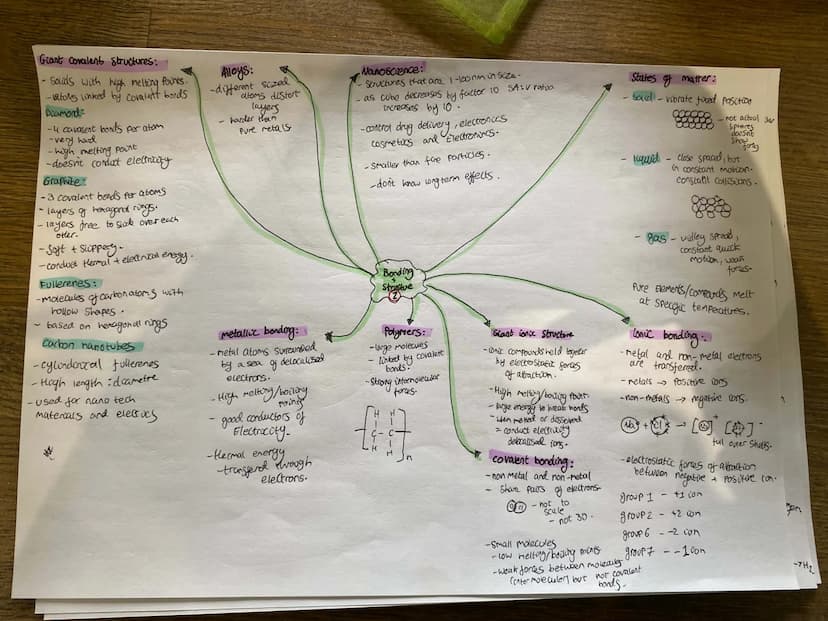 Giant covalent structures:
- Solids with high melting points.
- atoms linked by covalent bonds
Diamond:
- 4 covalent bonds per atom
- very hard
- high melting point
- doesnt conduct electricity
Graphite:
- 3 covalent bonds per atoms
- layers of hexagonal rings.
- layers free to slide over each
other.
- Soft + Slippery.
- conduct thermal + electrical energy.
Fullerenes:
- molecules of carbon atoms with
hollow shapes.
- based on hexagonal rings
Carbon nanotubes
- cylindrical fullerenes
- High length : diametre
- used for nano tech
materials and
Alloys:
- different sized
atoms distort
layers
- harder than
pure metals
Nanoscience:
- Structures that are 1-100nm in size.
- as cube decreases by factor 10 SA:V ratio
increases by 10.
- control drug delivery, electronics
cosmetics and
- smaller than fine particles.
- dont know long term effects.
States of matter:
- Solid - vibrate fixed position
- not actual
spheres
doesnt
show
forces
- liquid - close spaced, but
in constant motion.
constant collisions.
- gas - spread,
constant quick
motion, weak
forces.
Pure elements/compounds melt
at specific temperatures.
Bonding
+
Structure
2
metallic bonding:
- metal atoms surrounded
by a sea of delocalised
electrons.
- High melting/boiling
points
- good conductors of
Electricity.
- thermal energy
- transferred through
electrons.
Polymers:
- large molecules
- linked by covalent
bonds.
- Strong intermolecular
forces.
H H
C - C
H H
n
Giant ionic structure
- ionic compounds held together
by electrostatic forces
of attraction.
- High melting/boiling point.
- large energy to break bonds
- when melted or dissolved
= conduct electricity
delocalised ions.
Covalent bonding:
- non metal and non-metal
- share pairs of electrons
- not to
scale
- not 3D.
- Small molecules
- low melting/boiling points
- weak forces between molecules
(intermolecular) but not covalent
bonds.
Ionic bonding:
- metal and non-metal electrons
are transferred.
- metals → positive ions
- non-metals → negative ions.
Na + Cl → [Na]+ [Cl]-
full outer shells.
- electrostatic forces of attraction
between negative + positive ion.
group 1 - +1 ion
group 2 - +2 ion
group 6 - -2 ion
group 7 - -1 ion
→ H2